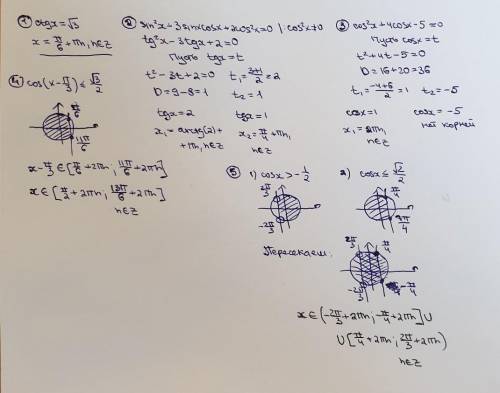 ① ctgx = √3
x = π/6 + πn, n∈Z
② sin²x + 3sinxcosx + 2cos²x = 0 | cos²x ≠ 0
tg²x - 3tgx + 2 = 0
Пусть tgx = t
t² - 3t + 2 = 0
D = 9 - 8 = 1
t₁ = (3+1)/2 = 2
t₂ = 1
tgx = 2
x₁ = arctg(2) +
+ πn, n∈Z
tgx = 1
x₂ = π/4 + πn,
n∈Z
③ cos²x + 4cosx - 5 = 0
Пусть cosx = t
t² + 4t - 5 = 0
D = 16 + 20 = 36
t₁ = (-4+6)/2 = 1 t₂ = -5
cosx = 1
x₁ = 2πn,
n∈Z
cosx = -5
нет корней
④ cos(x - π/3) ≤ √3/2
π/6
11π/6
x - π/3 ∈ [π/6 + 2πn; 11π/6 + 2πn]
x ∈ [π/2 + 2πn; 13π/6 + 2πn]
n∈Z
⑤ 1) cosx > -1/2
2π/3
-2π/3
2) cosx ≤ √2/2
π/4
Пересекаем:
2π/3
π/4
-2π/3
-π/4
x ∈ (-2π/3 + 2πn; -π/4 + 2πn] U
U [π/4 + 2πn; 2π/3 + 2πn)
n∈Z